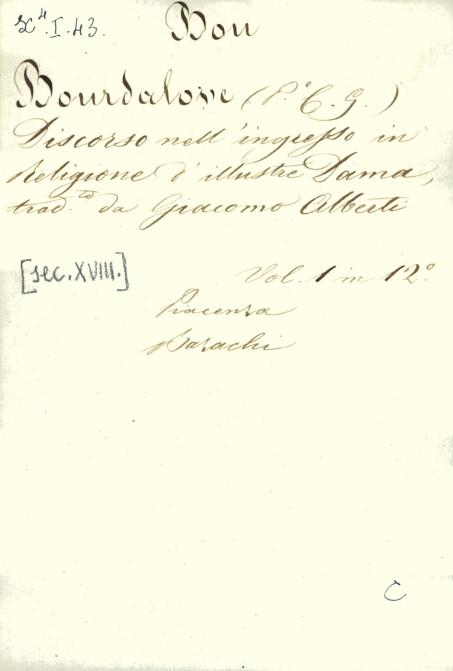 sc⁴. I. 43.
Bou
Bourdalove (P.e C. G.)
Discorso nell'ingresso in
Religione d'illustre Dama,
trad.to da Giacomo Alberti
[sec. XVIII.]
Vol. 1 in 12.o
Piacenza
C